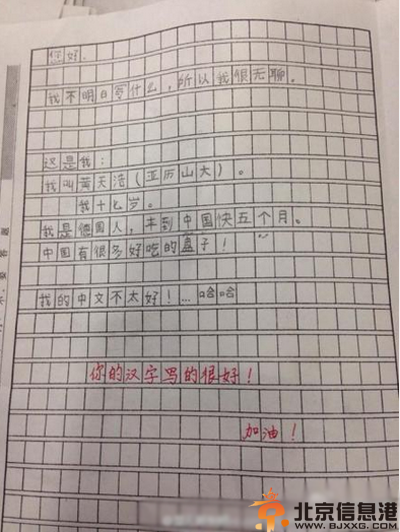 你好.
我不明白写什么，所以我很无聊。
这是我：
我叫黄天浩（亚历山大）。
我十七岁。
我是德国人，来到中国快五个月。
中国有很多好吃的盒子！
我的中文不太好！…哈哈
你的汉字写的很好！
加油！
北京信息港
WWW.BJXXG.COM